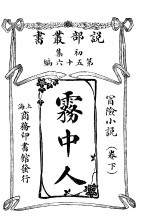 說部叢書
初集
第五十六編
冒險小說
(卷下)
霧中人
上海
商務印書館發行